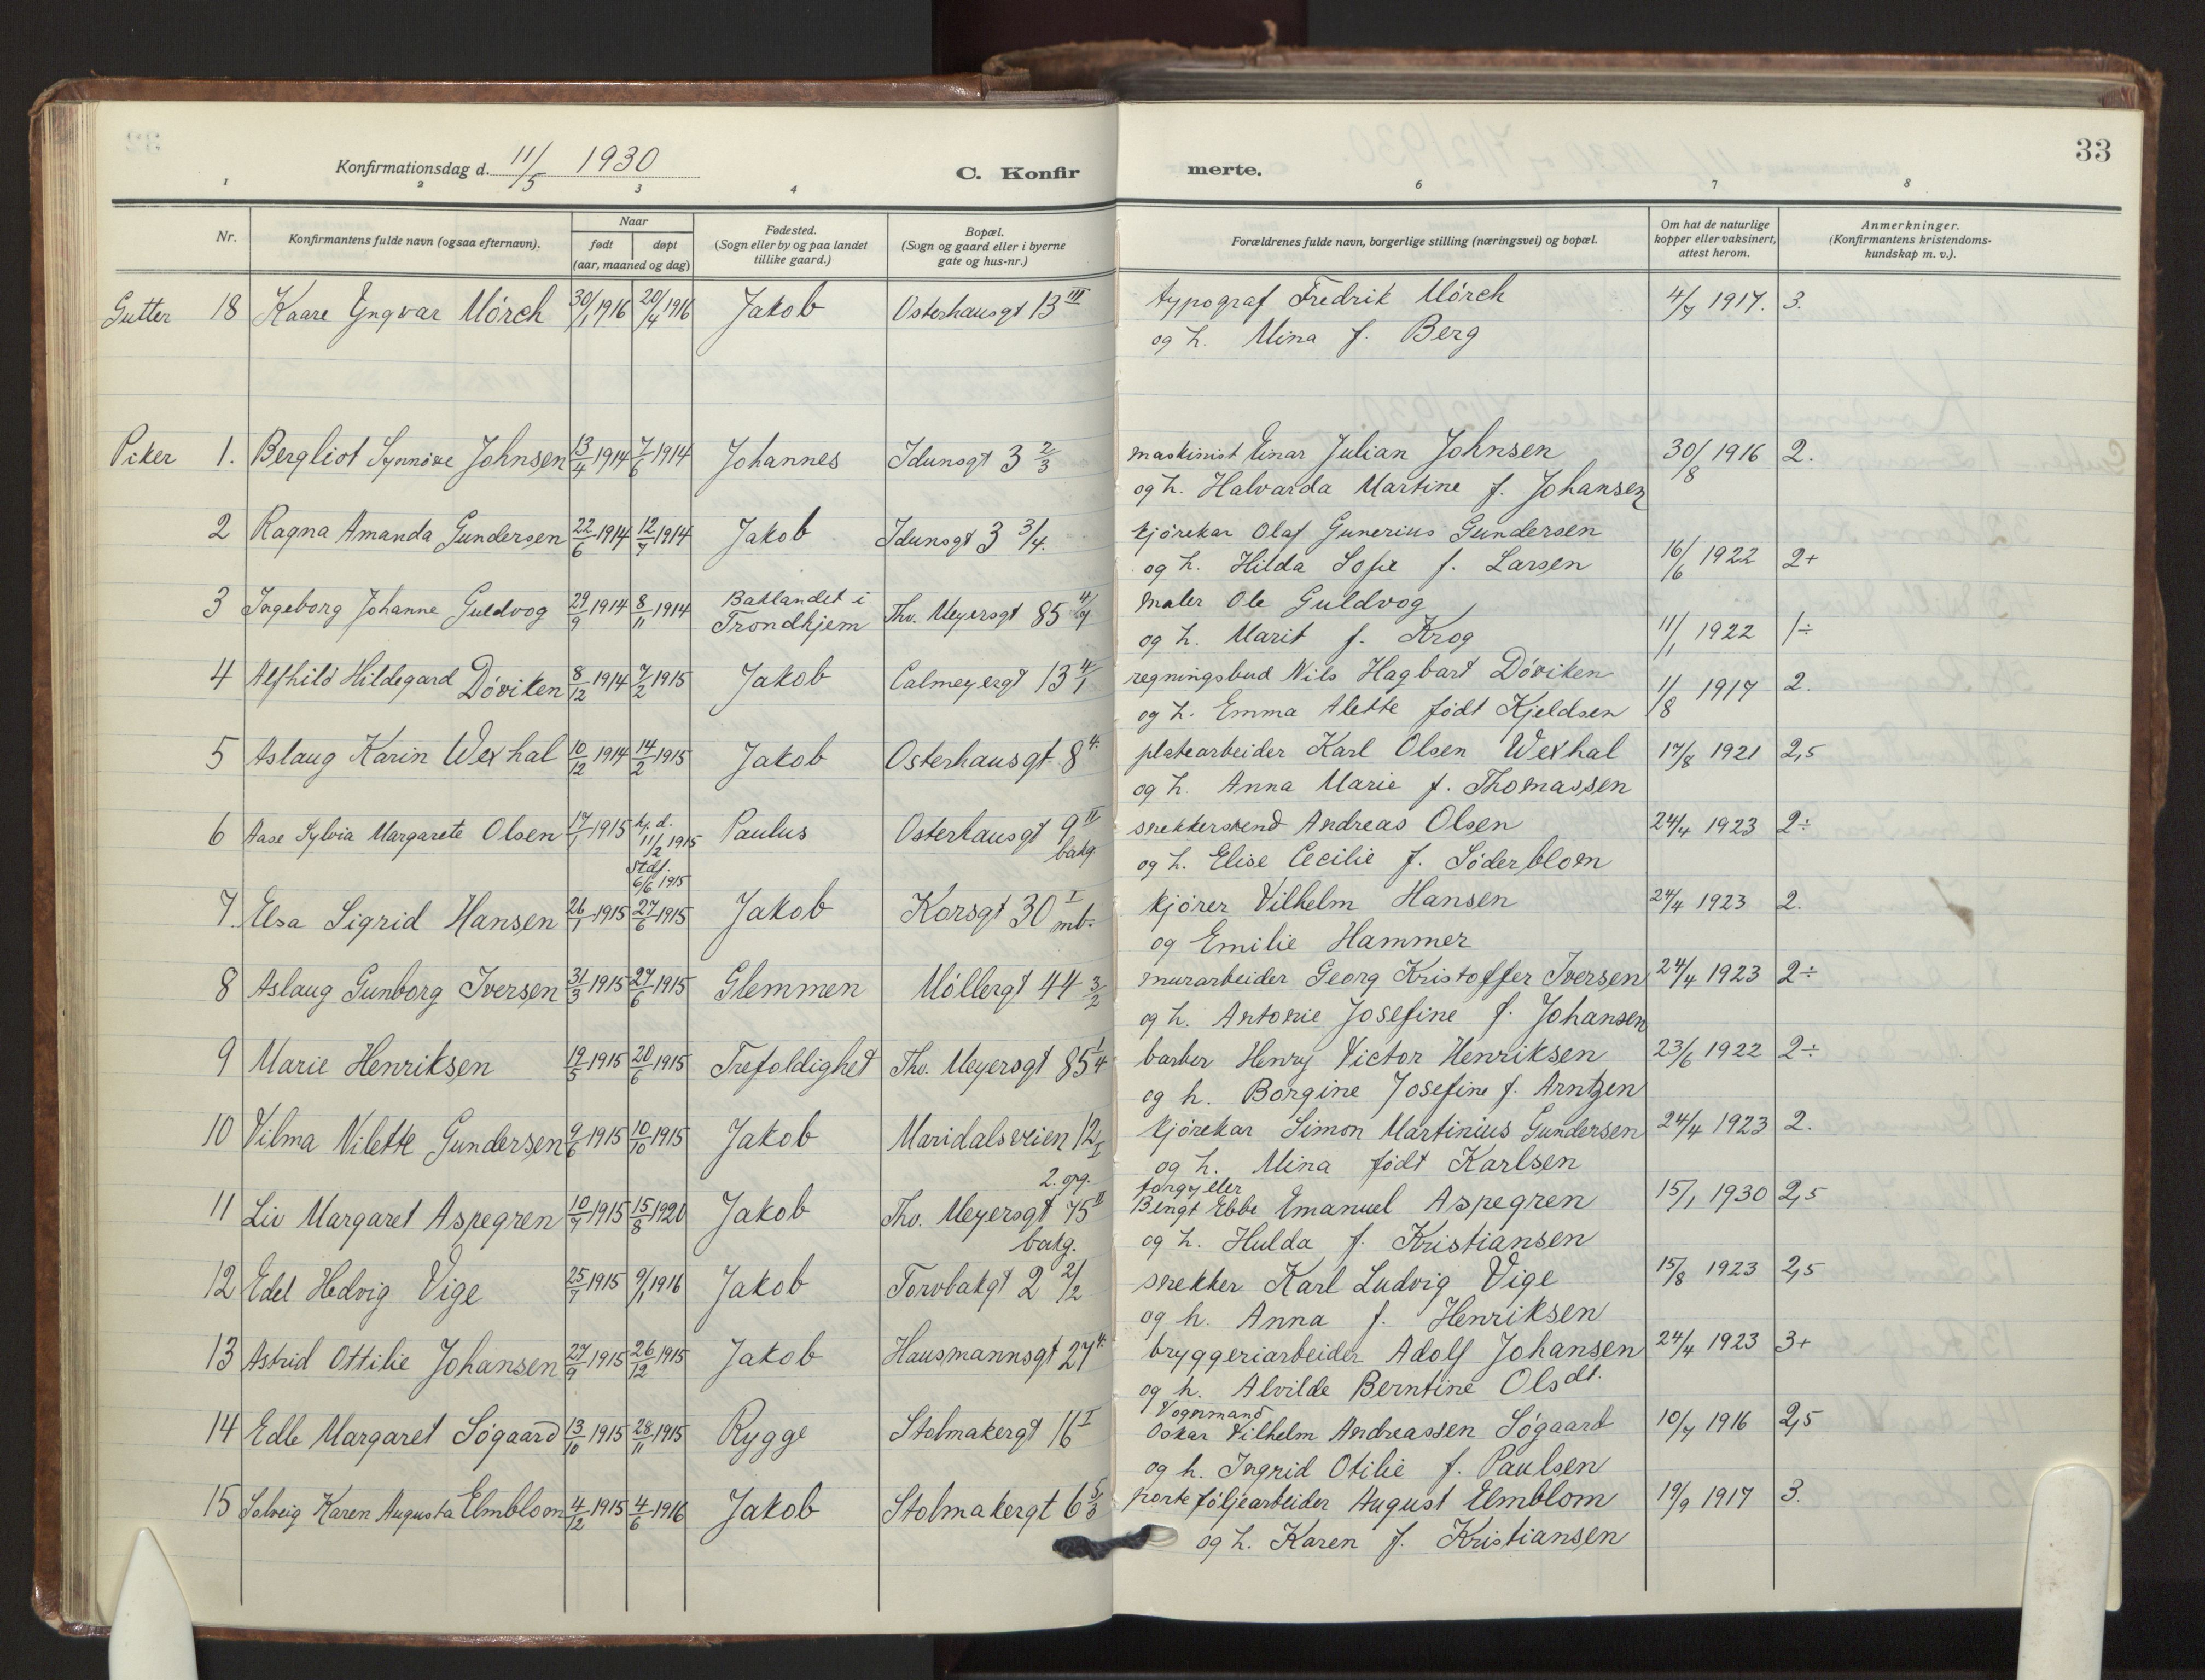 33
Konfirmationsdag d. 11/5 1930
C. Konfir merte.
1 2 3 4 6 7 8
Nr. Konfirmantens fulde navn (ogsaa efternavn). Naar født døpt (aar, maaned og dag) Fødested. (Sogn eller by og paa landet tillike gaard.) Bopæl. (Sogn og gaard eller i byerne gate og hus-nr.) Forældrenes fulde navn, borgerlige stilling (næringsvei) og bopæl. Om hat de naturlige kopper eller vaksinert, attest herom. Anmerkninger. (Konfirmantens kristendoms-kundskap m. v.).
Gutter 18 Kaare Yngvar Mørch 30/1 1916 20/4 1916 Jakob Osterhausgt 13 III typograf Fredrik Mørch 4/7 1917. 3.
og h. Mina f. Berg
Piker 1. Bergliot Synnøve Johnsen 13/4 1914 7/6 1914 Johannes Idunsgt 3 2/3 maskinist Einar Julian Johnsen 30/8 1916 2.
og h. Halvarda Martine f. Johansen
2 Ragna Amanda Gundersen 22/6 1914 12/7 1914 Jakob Idunsgt 3 3/4. kjørekar Olaf Gunerius Gundersen
og h. Hilda Sofie f. Larsen 16/6 1922 2+
3 Ingeborg Johanne Guldvog 29/9 1914 8/11 1914 Baklandet i Trondhjem Thv. Meyersgt 85 maler Ole Guldvog
og h. Marit f. Krog 11/1 1922 1÷
4 Alfhild Hildegard Døviken 8/12 1914 7/2 1915 Jakob Calmeyergt 13 4/1 regningsbud Nils Hagbart Døviken 11/8 1917 2.
og h. Emma Alette født Kjeldsen
5 Aslaug Karin Wexhal 10/12 1914 14/2 1915 Jakob Osterhausgt 8 4. platearbeider Karl Olsen Wexhal 17/8 1921 2,5
og h. Anna Marie f. Thomassen
6 Aase Sylvia Margarete Olsen 17/1 1915 hj. d. 11/2 1915 Stdf. 6/6 1915 Paulus Osterhausgt 9 II bakg snekkersvend Andreas Olsen 24/4 1923 2÷
og h. Elise Cecilie f. Søderblom
7. Elsa Sigrid Hansen 26/1 1915 27/6 1915 Jakob Korsgt 30 I mb. kjører Vilhelm Hansen 24/4 1923 2.
og Emilie Hammer
8 Aslaug Gunborg Iversen 31/3 1915 27/6 1915 Glemmen Møllergt 44 3/2 murarbeider Georg Kristoffer Iversen 24/4 1923 2÷
og h. Antonie Josefine f. Johansen
9 Marie Henriksen 19/5 1915 20/6 1915 Trefoldighet Thv. Meyersgt 85 1/4 barber Henry Victor Henriksen 23/6 1922 2÷
og h. Borgine Josefine f. Arntzen
10 Vilma Nilette Gundersen 9/6 1915 10/10 1915 Jakob Maridalsveien 12 I 2. opg. kjørekar Simon Martinius Gundersen 24/4 1923 2.
og h. Mina født Karlsen
11 Liv Margaret Aspegren 10/7 1915 15/8 1920 Jakob Thv. Meyersgt 75 II bakg. forgyller Bengt Ebbe Emanuel Aspegren 15/1 1930 2,5
og h. Hulda f. Kristiansen
12 Edel Hedvig Vige 25/7 1915 9/1 1916 Jakob Torvbakgt 2 2/2 snekker Karl Ludvig Vige 15/8 1923 2,5
og h. Anna f. Henriksen
13 Astrid Ottilie Johansen 27/9 1915 26/12 1915 Jakob Hausmannsgt 27 4. bryggeriarbeider Adolf Johansen 24/4 1923 3+
og h. Alvilde Berntine Olsdt.
14 Edle Margaret Søgaard 13/10 1915 28/11 1915 Rygge Stolmakergt 16 I Vognmand Oskar Vilhelm Andreassen Søgaard 10/7 1916 2,5
og h. Ingrid Otilie f. Paulsen
15 Solveig Karen Augusta Elmblom 4/12 1915 4/6 1916 Jakob Stolmakergt 6 5/3 porteføljearbeider August Elmblom 19/9 1917 3.
og h. Karen f. Kristiansen